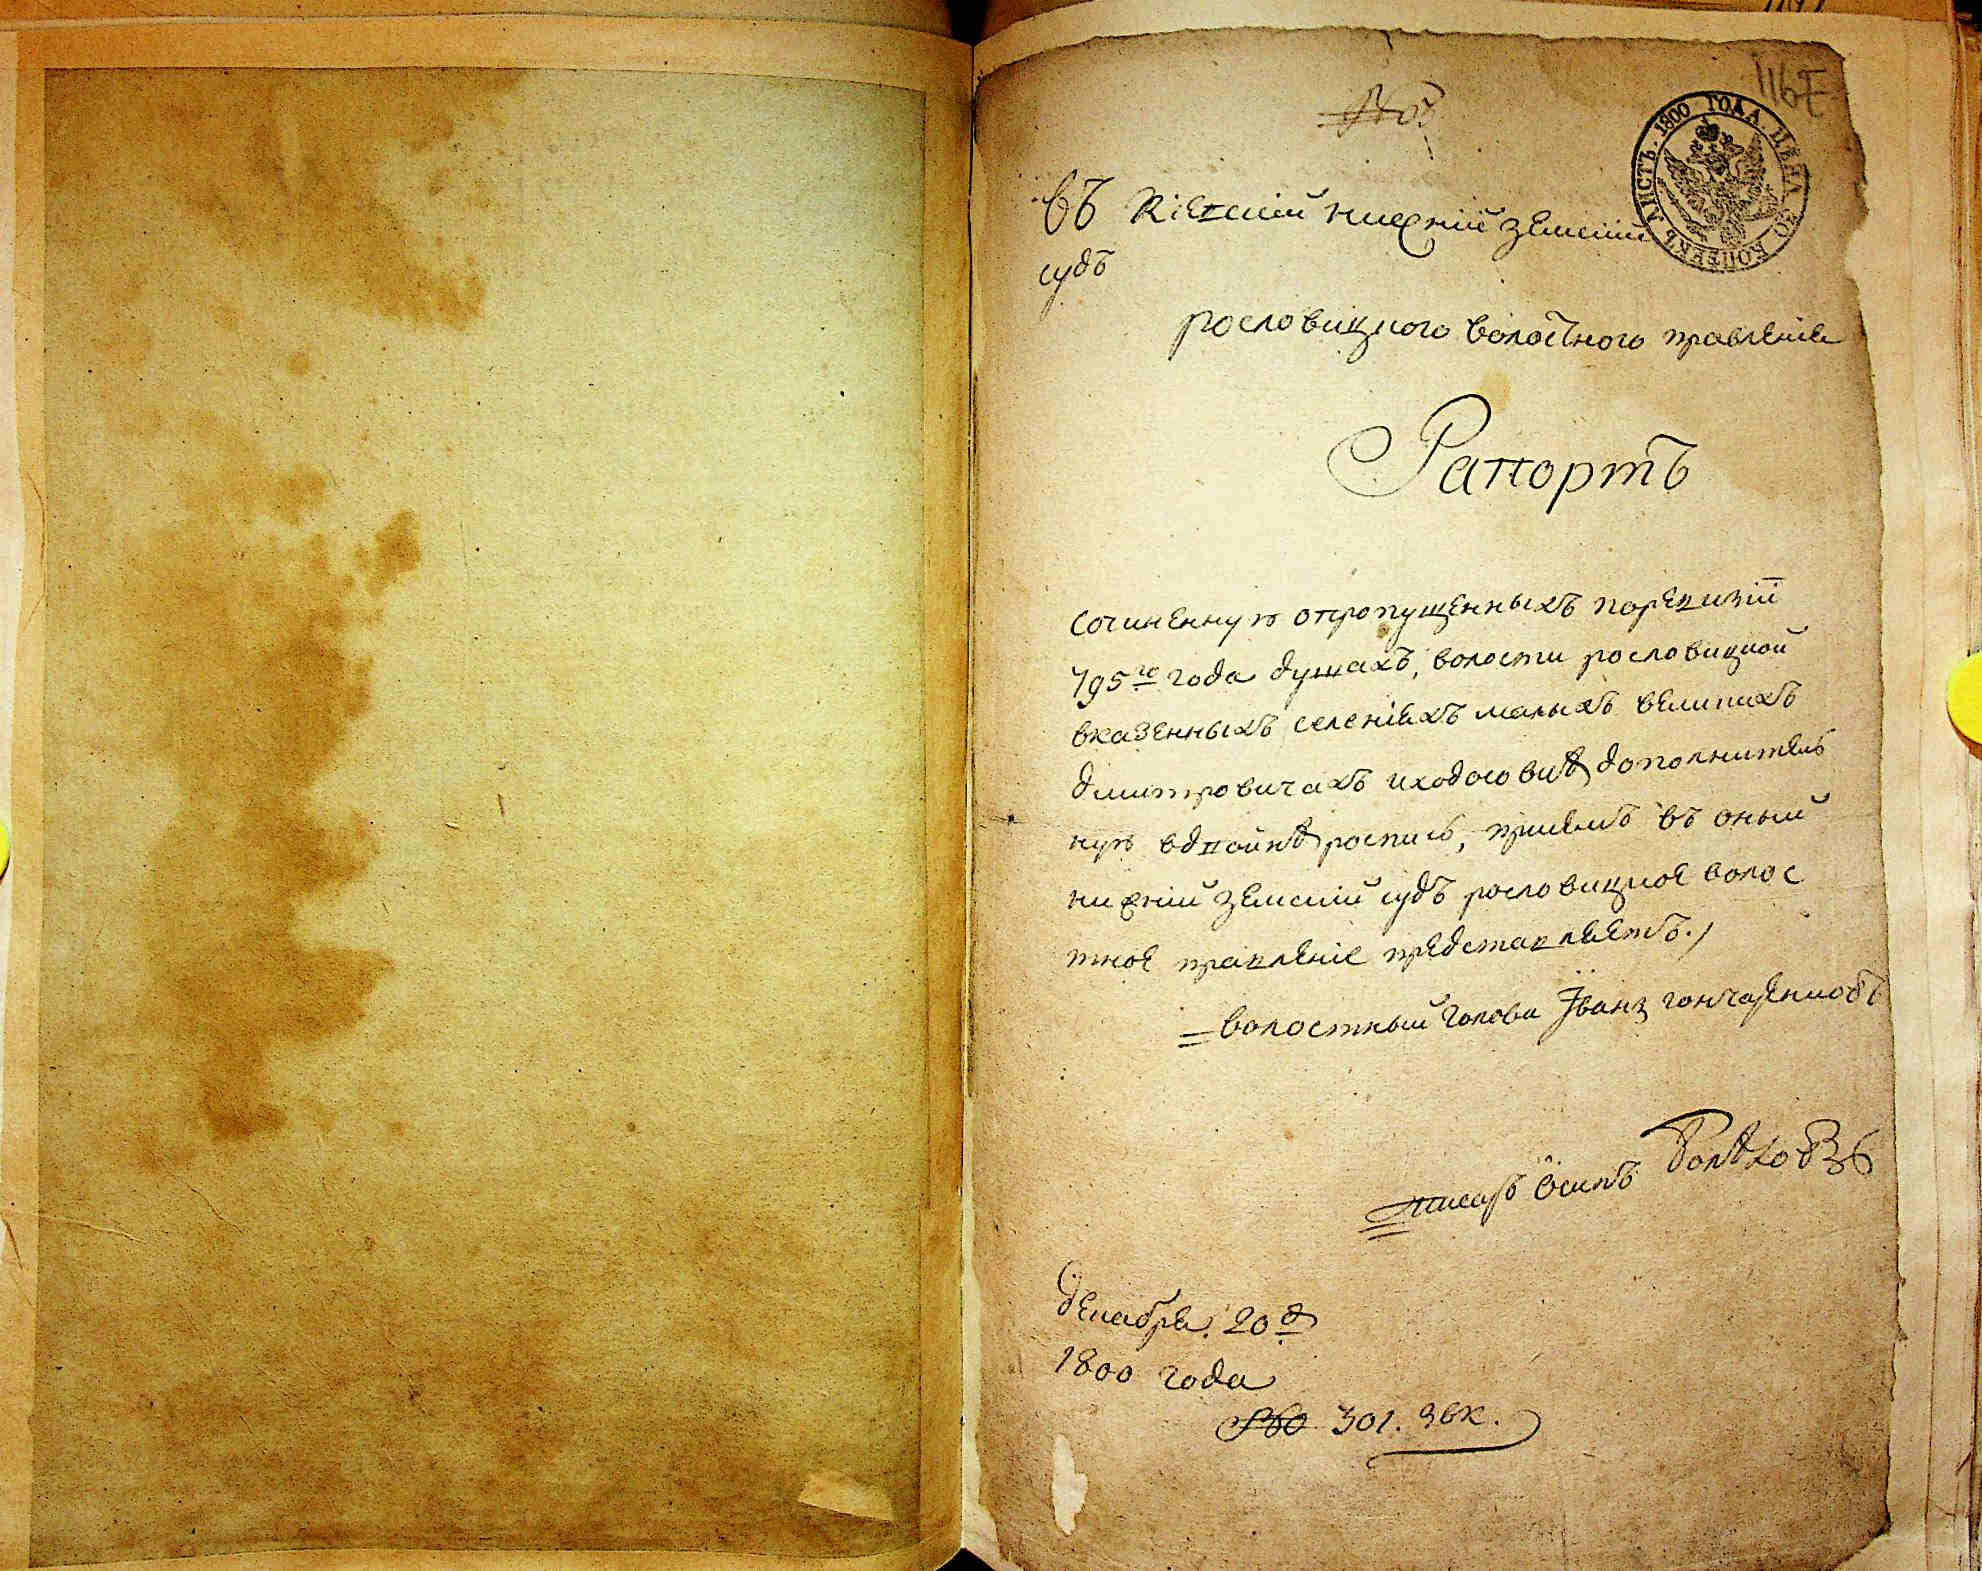 1167
ЛИСТЪ. 1800 ГОДА. ЦѢНА 30 КОПѢЕКЪ
въ киевский нижний земский
судъ
рословицкого волостного правления
Рапортъ
сочиненную опропущенныхъ поревизіи
795го года душахъ, волости рословицкой
вказенныхъ селеніяхъ малыхъ великихъ
дмитровичахъ иходосовке дополнитель
ную вдвойне роспись, приемъ въ оный
нижній земский судъ рословицкое волос
тное правленіе представляетъ.
волостный голова Іванъ гончаренковъ
писарь Осипъ
декабря. 20 д
1800 года
№ 301.